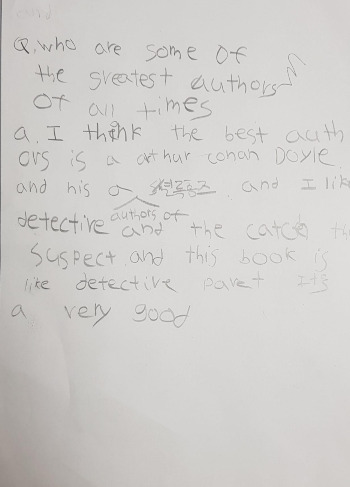 Q. who are some of
the greatest authors
of all times
a. I think the best auth
ors is a arthur conan Doyle
and his a 셜록홈즈 and I like
authors of
detective and the catch th
suspect and this book is
like detective paret It's
a very good